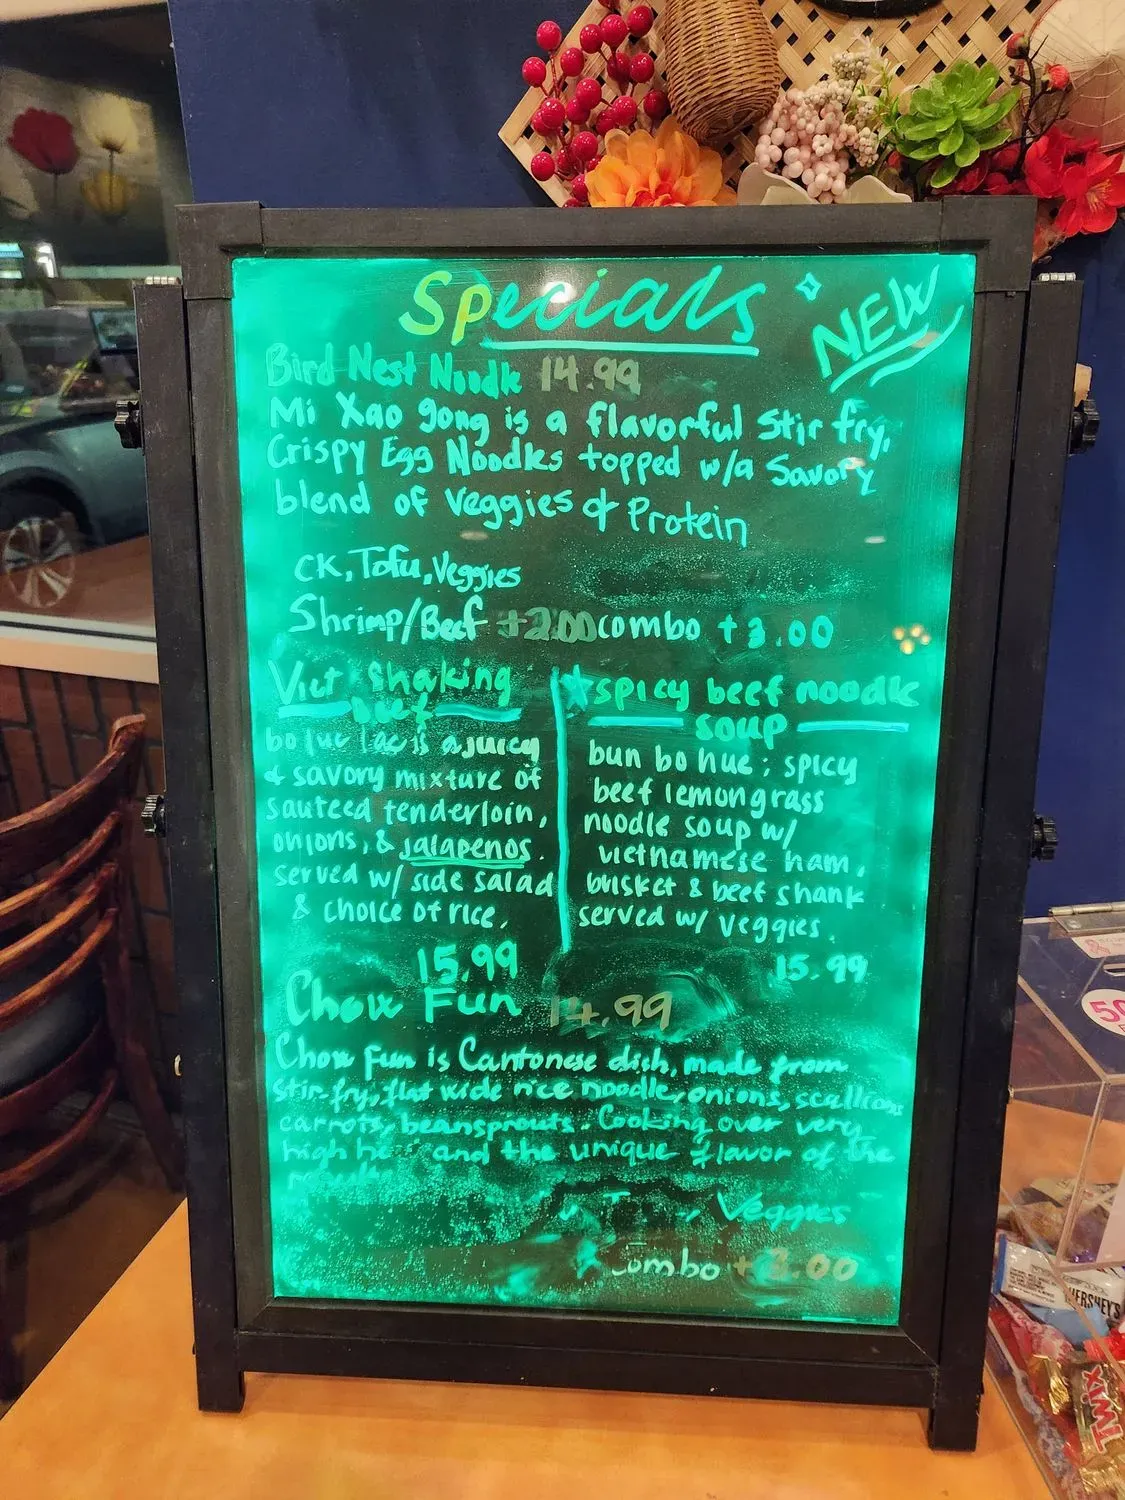 Specials
NEW
Bird Nest Noodle 14.99
Mi Xao gong is a flavorful Stir fry,
Crispy Egg Noodles topped w/a Savory
blend of veggies & Protein
CK, Tofu, Veggies
Shrimp/Beef +2.00 combo +3.00
Viet Shaking
beef
bo luc lac is a juicy
& savory mixture of
sauteed tenderloin,
onions, & jalapenos.
served w/ side salad
& choice of rice,
15.99
spicy beef noodle
soup
bun bo hue; spicy
beef lemongrass
noodle soup w/
vietnamese ham,
brisket & beef shank
served w/ veggies.
15.99
Chow Fun 14.99
Chow Fun is Cantonese dish, made from
stir-fry, flat wide rice noodle, onions, scallions
carrots, beansprouts. Cooking over very
high and the unique flavor of the
Veggies
combo +3.00
HERSHEY'S
TWIX